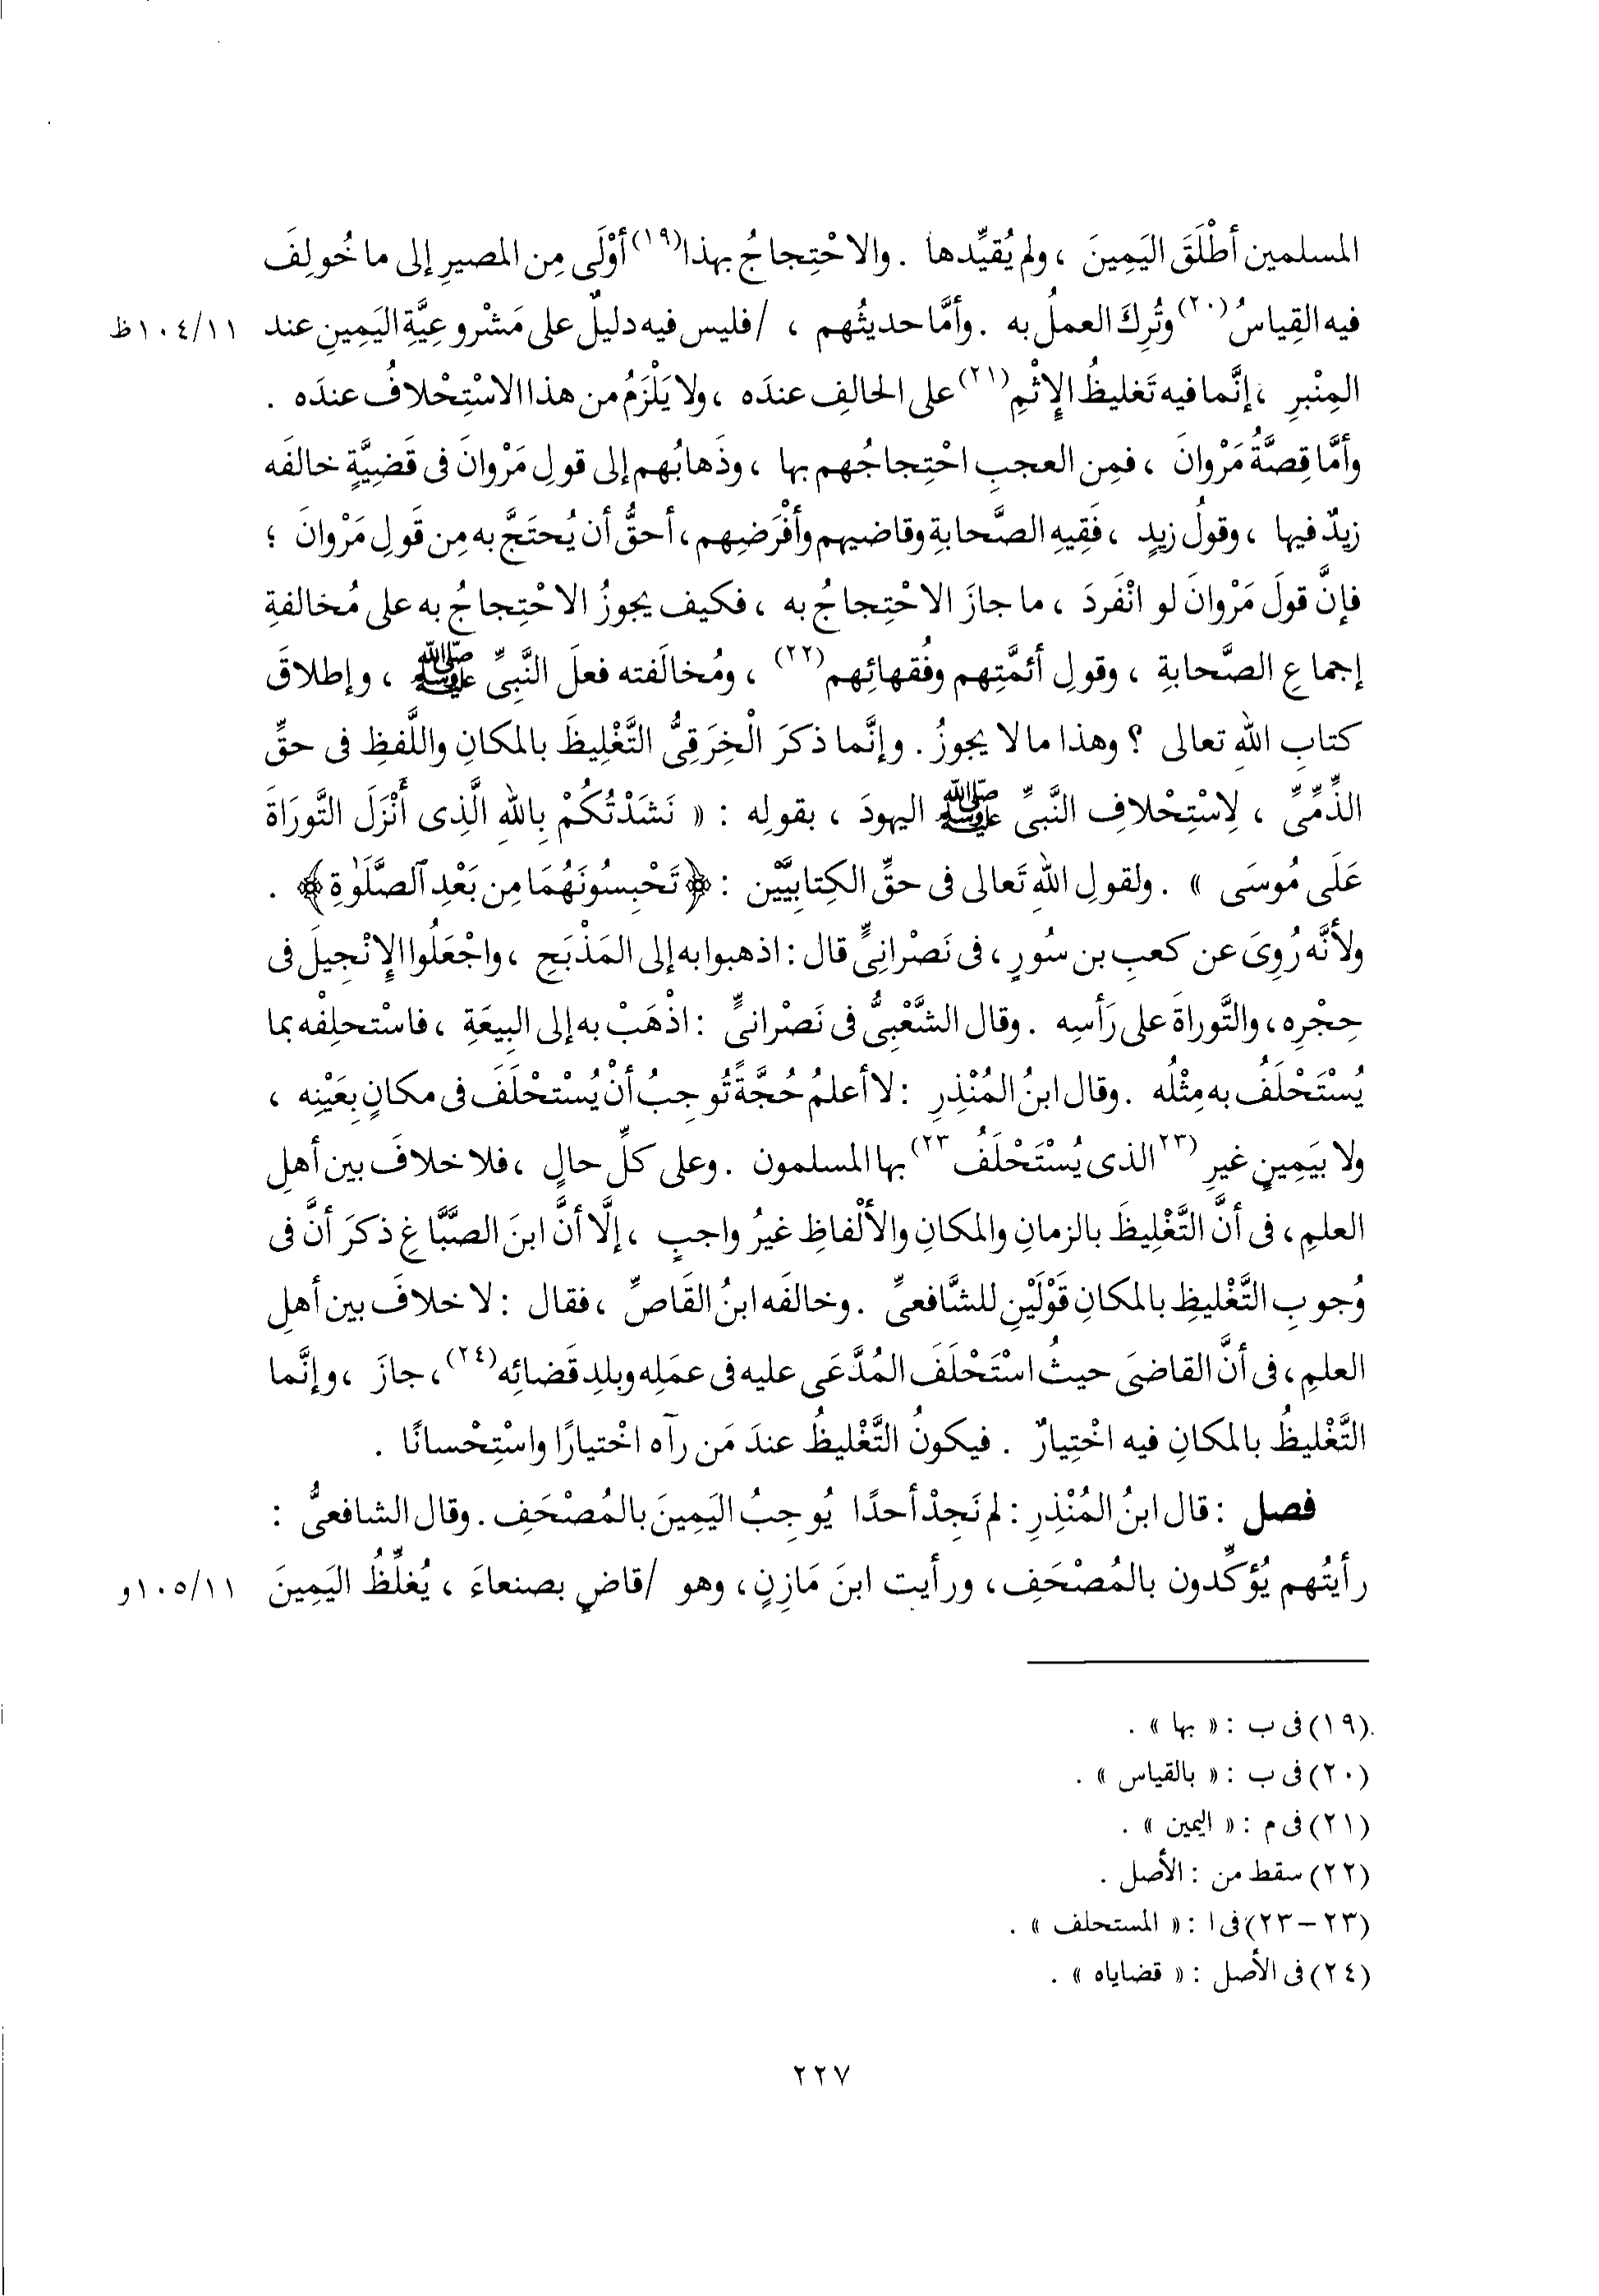 المسلمين أطْلَقَ اليَمِينَ ، ولم يُقيِّدها . والاحْتِجاجُ بهذا(١٩) أوْلَى مِن المصيرِ إلى ما خُولِفَ
فيه القِياسُ(٢٠) وتُرِكَ العملُ به . وأمَّا حديثُهم ، /فليس فيه دليلٌ على مَشْروعِيَّةِ اليَمِينِ عند ١٠٤/١١ظ
المِنْبرِ ، إنَّما فيه تَغليظُ الإِثْمِ(٢١) على الحالِفِ عندَه ، ولا يَلْزَمُ من هذا الاسْتِحْلافُ عندَه .
وأمَّا قِصَّةُ مَرْوانَ ، فمِن العجبِ احْتِجاجُهم بها ، وذَهابُهم إلى قولِ مَرْوانَ فى قَضِيَّةٍ خالفَه
زيدٌ فيها ، وقولُ زيدٍ ، فَقِيهِ الصَّحابةِ وقاضيهم وأفْرَضِهم ، أحقُّ أن يُحتَجَّ به مِن قَولِ مَرْوانَ ؛
فإنَّ قولَ مَرْوانَ لو انْفَردَ ، ما جازَ الاحْتِجاجُ به ، فكيف يجوزُ الاحْتِجاجُ به على مُخالفةِ
إجماعِ الصَّحابةِ ، وقولِ أئمَّتِهم وفُقهائِهم(٢٢) ، ومُخالَفته فعلَ النَّبِىِّ ﷺ ، وإطلاقَ
كتابِ اللهِ تعالى ؟ وهذا ما لا يجوزُ . وإنَّما ذكرَ الْخِرَقِىُّ التَّغْلِيظَ بالمكانِ واللَّفظِ فى حقِّ
الذِّمِّىِّ ، لِاسْتِحْلافِ النَّبىِّ ﷺ اليهودَ ، بقولِه : « نَشَدْتُكُمْ بِاللهِ الَّذِى أَنْزَلَ التَّورَاةَ
عَلَى مُوسَى » . ولقولِ اللهِ تَعالى فى حقِّ الكِتابِيَّيْن : ﴿ تَحْبِسُونَهُمَا مِن بَعْدِ ٱلصَّلَوٰةِ ﴾ .
ولأنَّه رُوِىَ عن كعبِ بن سُورٍ ، فى نَصْرانِىٍّ قال : اذهبوا به إلى المَذْبَحِ ، واجْعَلُوا الإِنْجِيلَ فى
حِجْرِه ، والتَّوراةَ على رَأسِه . وقال الشَّعْبِىُّ فى نَصْرانىٍّ : اذْهَبْ به إلى البِيعَةِ ، فاسْتحلِفْه بما
يُسْتَحْلَفُ به مِثْلُه . وقال ابنُ المُنْذِرِ : لا أعلمُ حُجَّةً تُوجِبُ أنْ يُسْتحْلَفَ فى مكانٍ بِعَيْنِه ،
ولا بيَمِينٍ غيرِ (٢٣الذى يُسْتَحْلَفُ٢٣) بها المسلمون . وعلى كلِّ حالٍ ، فلا خلافَ بين أهلِ
العلمِ ، فى أنَّ التَّغْلِيظَ بالزمانِ والمكانِ والألْفاظِ غيرُ واجبٍ ، إلَّا أنَّ ابنَ الصَّبَّاغِ ذكرَ أنَّ فى
وُجوبِ التَّغْليظِ بالمكانِ قَوْلَيْنِ للشَّافعىِّ . وخالفَه ابنُ القَاصِّ ، فقال : لا خلافَ بين أهلِ
العلمِ ، فى أنَّ القاضىَ حيثُ اسْتَحْلَفَ المُدَّعَى عليه فى عمَلِه وبلدِ قَضائِه(٢٤) ، جازَ ، وإنَّما
التَّغْليظُ بالمكانِ فيه اخْتِيارٌ . فيكونُ التَّغْليظُ عندَ مَن رآه اخْتيارًا واسْتِحْسانًا .
فصل : قال ابنُ المُنْذِرِ : لم نَجِدْ أحدًا يُوجِبُ اليَمِينَ بالمُصْحَفِ . وقال الشافعىُّ :
رأيتُهم يُؤكِّدون بالمُصْحَفِ ، ورأيت ابنَ مَازِنٍ ، وهو /قاضٍ بصنعاءَ ، يُغلِّظُ اليَمِينَ ١٠٥/١١و
(١٩) فى ب : « بها » .
(٢٠) فى ب : « بالقياس » .
(٢١) فى م : « اليمين » .
(٢٢) سقط من : الأصل .
(٢٣-٢٣) فى ا : « المستحلف » .
(٢٤) فى الأصل : « قضاياه » .
٢٢٧